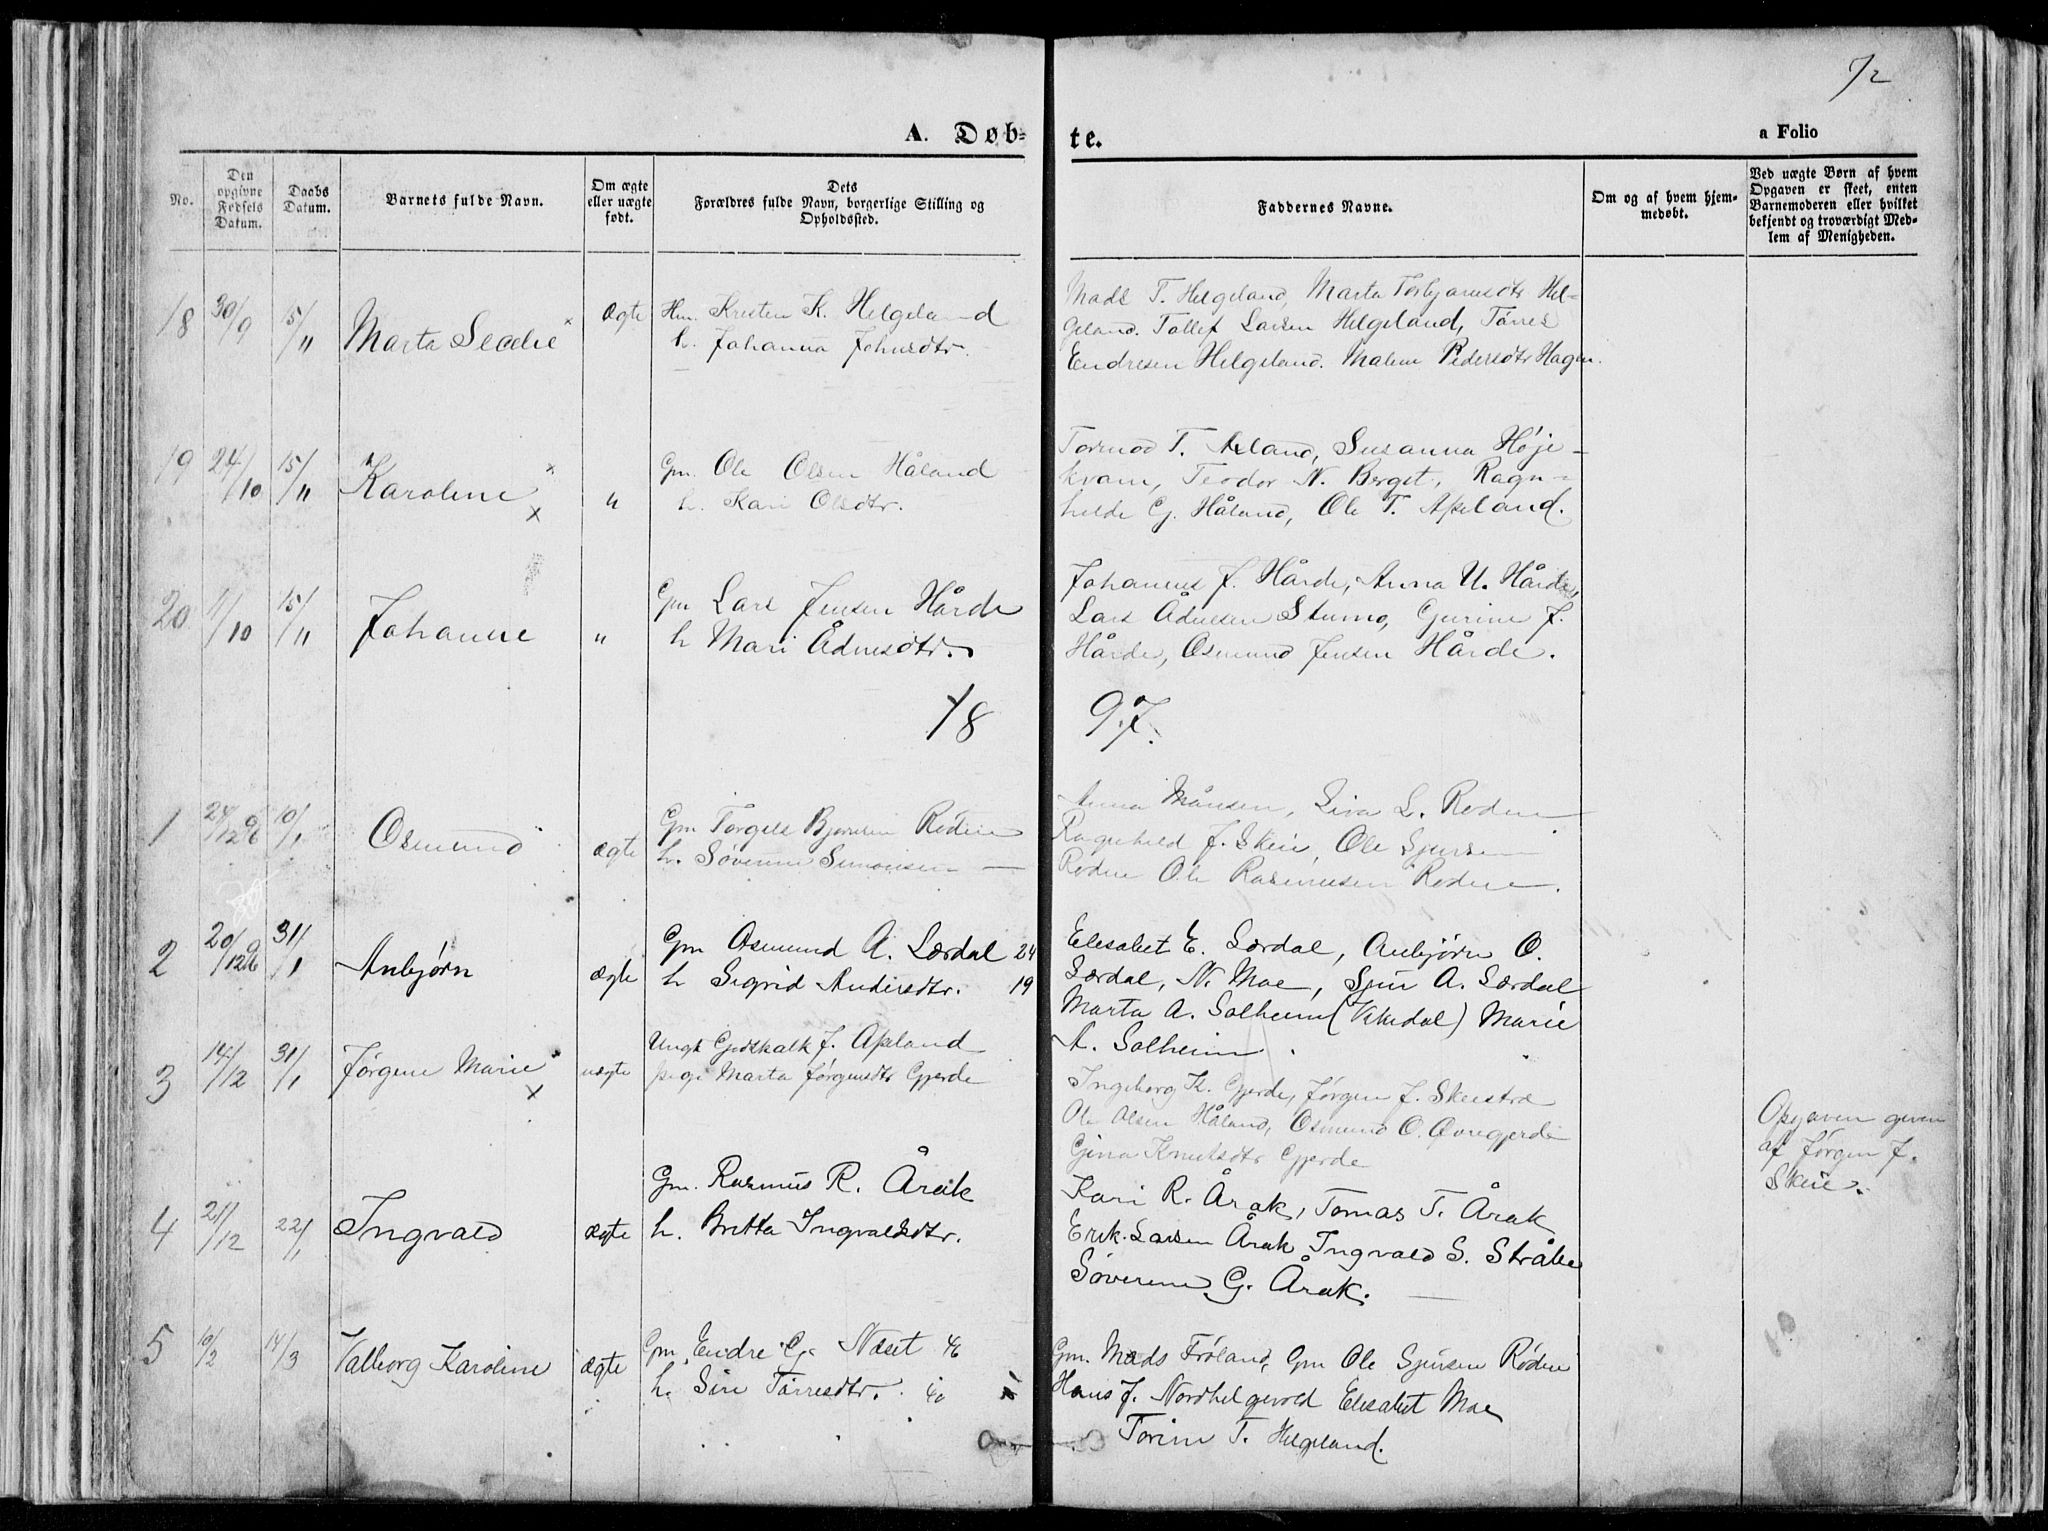 72
A. Døb- te.
a Folio
No.
Den opgivne Fødsels Datum.
Daabs Datum.
Barnets fulde Navn.
Om ægte eller uægte født.
Dets Forældres fulde Navn, borgerlige Stilling og Opholdssted.
Faddernes Navne.
Om og af hvem hjemmedøbt.
Ved uægte Børn af hvem Opgaven er skeet, enten Barnemoderen eller hvilket bekjendt og troværdigt Medlem af Menigheden.
18 30/9 15/11 Marta ægte Gm. Kristen K. Helgeland
h. Johanna Johnsdtr.
Mads T. Helgeland, Marta Torbjørnsdtr Hel-
geland. Tollef Larsen Helgeland, Tørres
Endresen Helgeland. Malene Pedersdtr Hagen.
19 24/10 15/11 Karoline x " Gm. Ole Olsen Håland
h. Kari Olsdtr.
Tormod T. Apeland, Susanna Høje-
kvam, Teodor N. Berget, Ragn-
hilde G. Håland, Ole T. Apeland.
20 1/10 15/11 Johanne " Gm Lars Jensen Hårde
h Mari Ådnesdtr.
Johannes J. Hårde, Anna U. Hårde,
Lars Ådnesen Stumo, Gurine J.
Hårde, Osmund Jensen Hårde.
18 97.
1 24/12 96 10/1 Osmund ægte Gm Torgels Bjørnsen Røden
h. Søverine Simonsen —
Anna Månsen, Siva L. Roden
Ragnhild J. Skeie, Ole Sjursen
Røden Ole Rasmussen Roden.
2 20/12 96 31/1 Anbjørn ægte Gm Osmund A. Lærdal 24
h Sigrid Andersdtr. 19
Elesabet E. Lærdal, Anbjørn O.
Lærdal, N. Moe, Sjur A. Lærdal
Marta A. Solheim (Vikedal) Marie
A. Solheim.
3 14/12 31/1 Jørgene Marie x uægte Ungk Godskalk J. Apeland
pige Marta Jørgensdtr Gjerde
Ingeborg K. Gjerde, Jørgen J. Skeistræ
Ole Olsen Håland, Osmund O. Øvregjerde
Gina Knutsdtr Gjerde
Opgaven given
af Jørgen J.
Skeie.
4 21/12 22/1 Ingvald ægte Gm. Rasmus R. Årak
h. Britta Ingvaldsdtr.
Kari R. Årak, Tomas T. Årak
Erik Larsen Årak Ingvald S. Stråbe
Søverine G. Årak.
5 10/2 14/3 Valborg Karoline ægte Gm. Endre G. Næset 46
h. Siri Tørresdtr. 40
Gm. Mads Frøland, Gm Ole Sjursen Røden
Hans J. Nordhelgevold Elesabet Moe
Torine T. Helgeland.